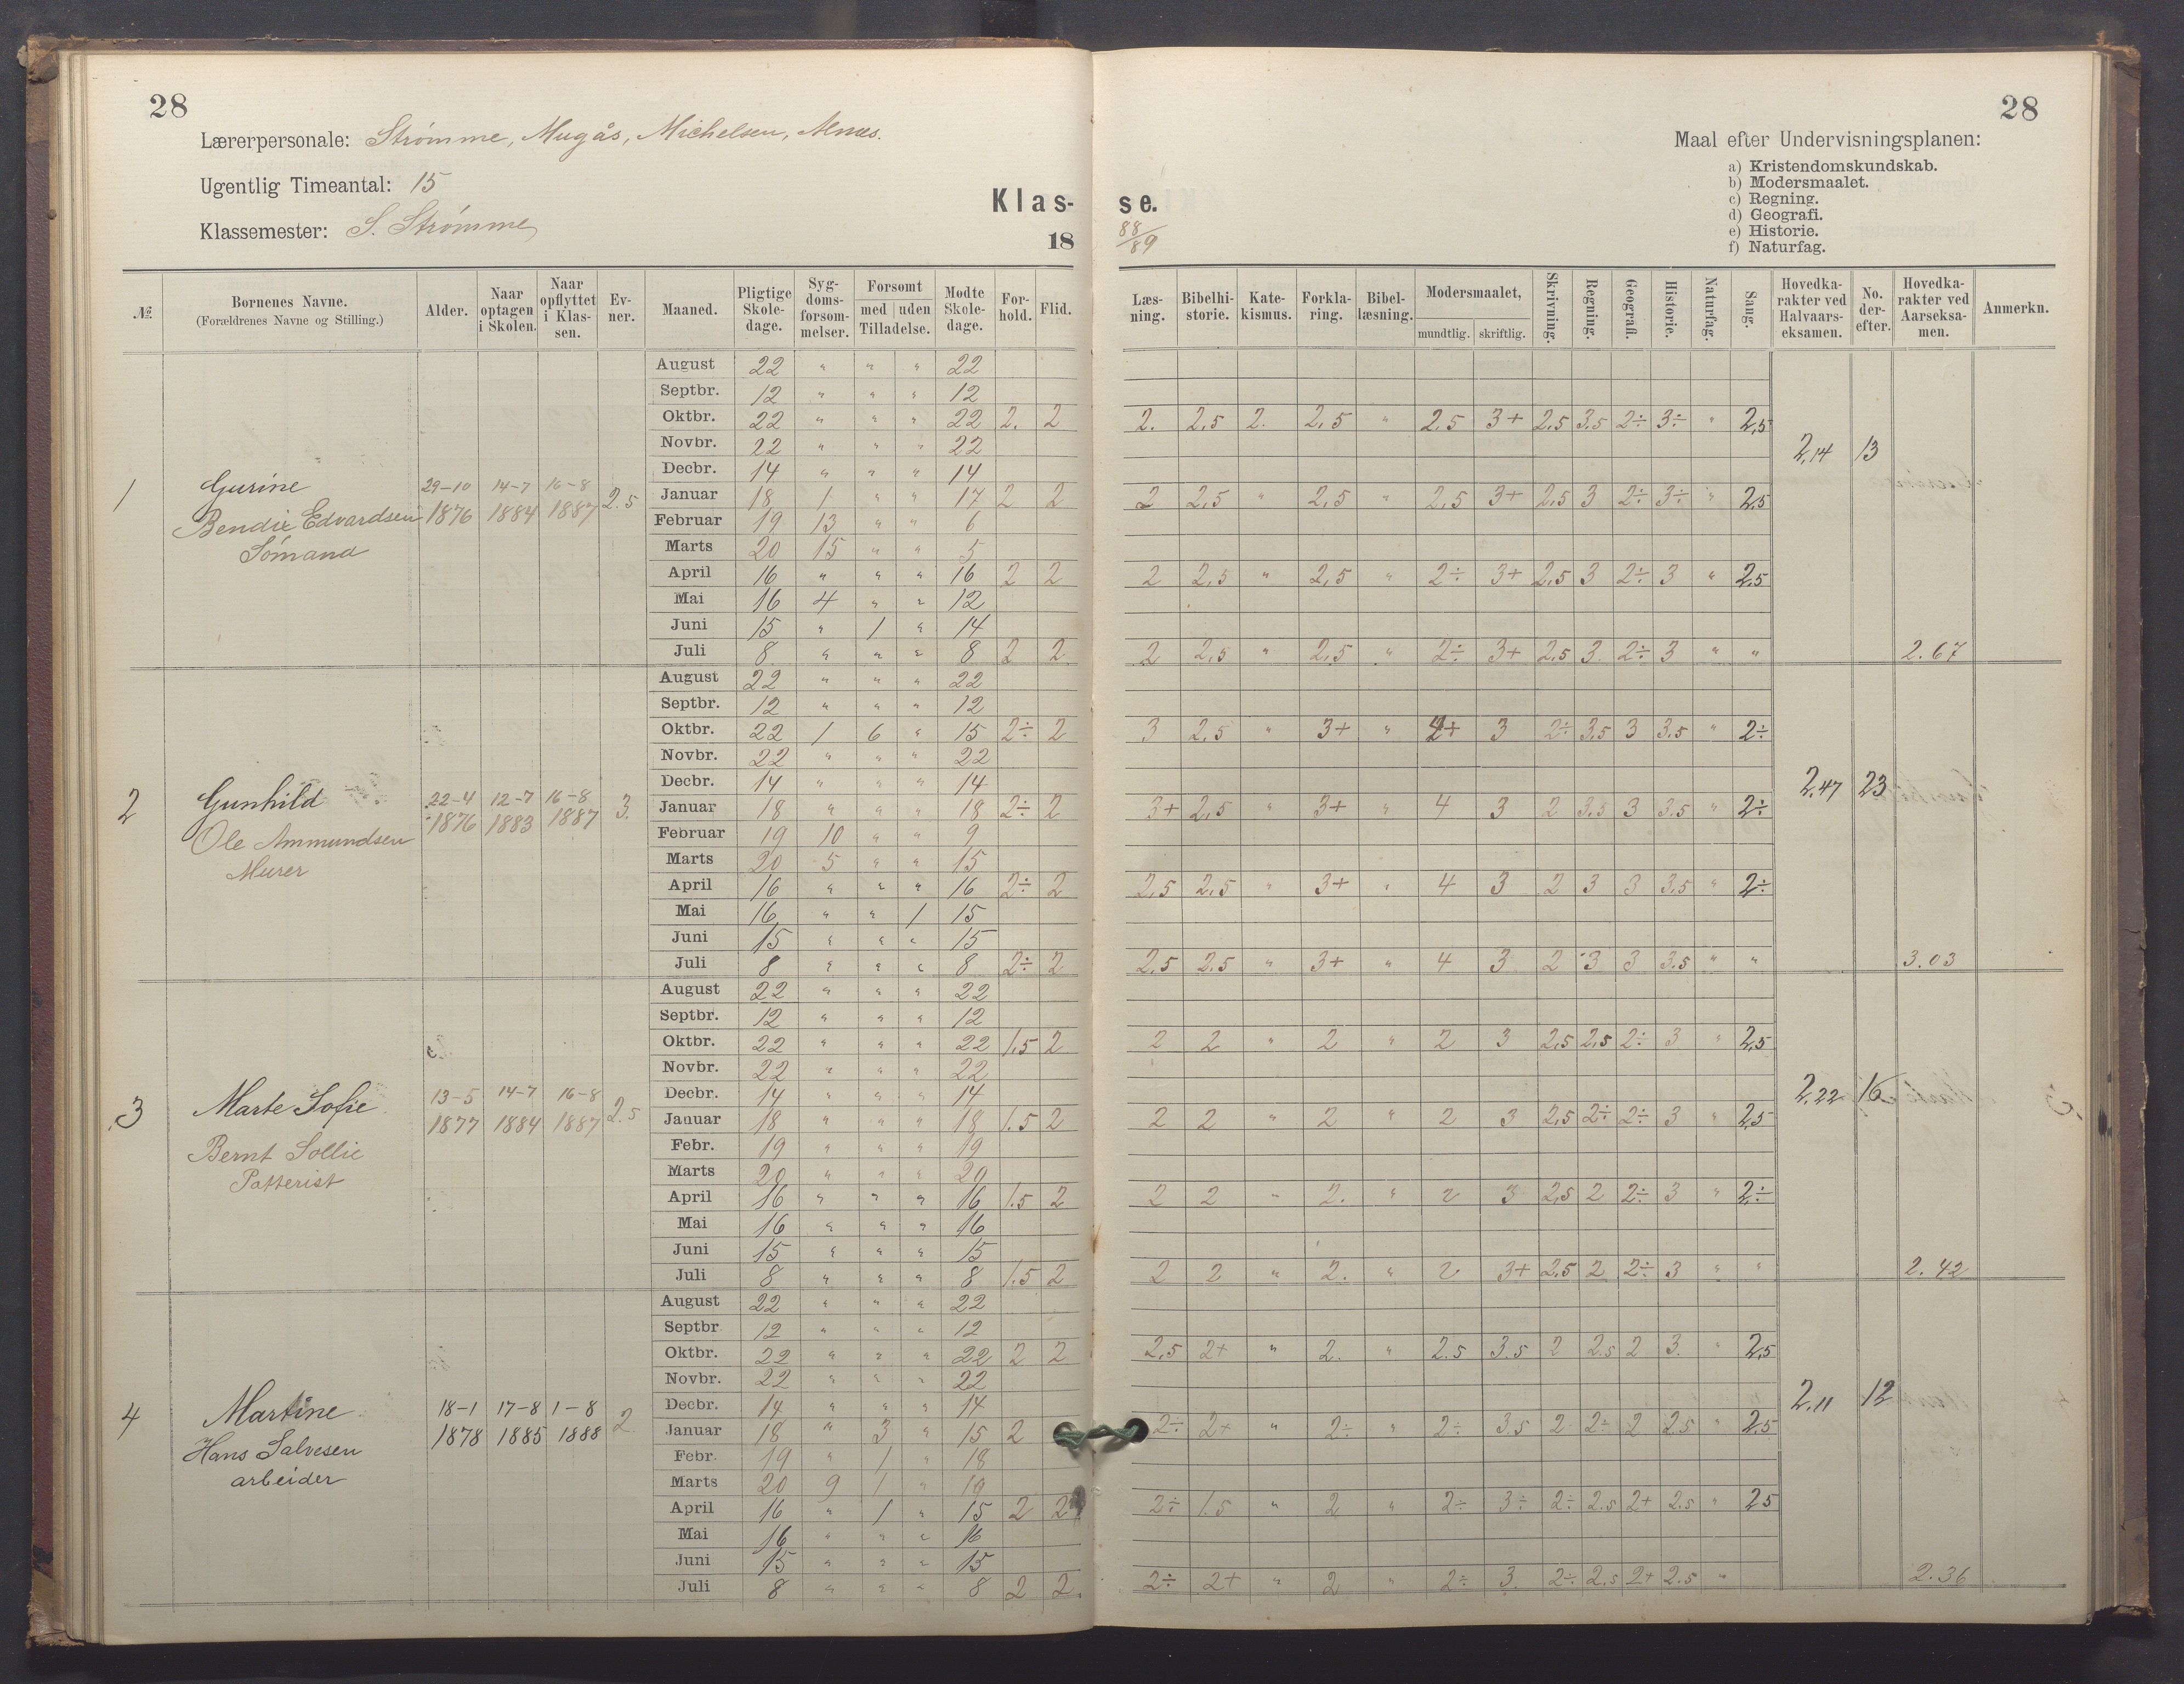 28
28
Lærerpersonale: Strømme, Mugås, Michelsen,
Ugentlig Timeantal: 15
Klassemester: S. Strømme
Klasse.
18 88/89
Maal efter Undervisningsplanen:
a) Kristendomskundskab.
b) Modersmaalet.
c) Regning.
d) Geografi.
e) Historie.
f) Naturfag.
№. | Børnenes Navne. (Forældrenes Navne og Stilling.) | Alder. | Naar optagen i Skolen. | Naar opflyttet i Klassen. | Evner. | Maaned. | Pligtige Skoledage. | Sygdomsforsømmelser. | Forsømt med | uden Tilladelse. | Mødte Skoledage. | Forhold. | Flid. | Læsning. | Bibelhistorie. | Katekismus. | Forklaring. | Bibellæsning. | Modersmaalet, mundtlig. | skriftlig. | Skrivning. | Regning. | Geografi. | Historie. | Naturfag. | Sang. | Hovedkarakter ved Halvaarseksamen. | No. derefter. | Hovedkarakter ved Aarseksamen. | Anmerkn.
1 Gurine
Bendix Edvardsen
Sømand
29-10 1876 | 14-7 1884 | 16-8 1887 | 2.5
August 22 " " " 22
Septbr. 12 " " " 12
Oktbr. 22 " " " 22 2. 2 | 2. 2,5 2. 2,5 " 2.5 3+ 2,5 3.5 2÷ 3÷ " 2,5
Novbr. 22 " " " 22
Decbr. 14 " " " 14
2,14 13
Januar 18 1 " " 17 2 2 | 2 2,5 " 2,5 " 2,5 3+ 2,5 3 2÷ 3÷ " 2,5
Februar 19 13 " " 6
Marts 20 15 " " 5
April 16 " " " 16 2 2 | 2 2,5 " 2,5 " 2÷ 3+ 2,5 3 2÷ 3 " 2,5
Mai 16 4 " " 12
Juni 15 " 1 " 14
Juli 8 " " " 8 2 2 | 2 2,5 " 2,5 " 2÷ 3+ 2,5 3 2÷ 3 " " 2.67
2 Gunhild
Ole Ammundsen
Murer
22-4 1876 | 12-7 1883 | 16-8 1887 | 3.
August 22 " " " 22
Septbr. 12 " " " 12
Oktbr. 22 1 6 " 15 2÷ 2 | 3 2,5 " 3+ " 3 2÷ 3.5 3 3.5 " 2÷
Novbr. 22 " " " 22
Decbr. 14 " " " 14
2,47 23
Januar 18 " " " 18 2÷ 2 | 3+ 2,5 " 3+ " 4 3 2 3.5 3 3.5 " 2÷
Februar 19 10 " " 9
Marts 20 5 " " 15
April 16 " " " 16 2÷ 2 | 2,5 2,5 " 3+ " 4 3 2 3 3 3.5 " 2÷
Mai 16 " " 1 15
Juni 15 " " " 15
Juli 8 " " " 8 2÷ 2 | 2,5 2.5 " 3+ " 4 3 2 3 3 3.5 " " 3.03
3 Marte Sofie
Bernt Sollie
13-5 1877 | 14-7 1884 | 16-8 1887 | 2.5
August 22 " " " 22
Septbr. 12 " " " 12
Oktbr. 22 " " " 22 1.5 2 | 2 2 " 2 " 2 3 2,5 2,5 2÷ 3 " 2,5
Novbr. 22 " " " 22
Decbr. 14 " " " 14
2,22 16
Januar 18 " " " 18 1.5 2 | 2 2 " 2 " 2 3 2,5 2÷ 2÷ 3 " 2,5
Febr. 19 " " " 19
Marts 20 " " " 20
April 16 " " " 16 1.5 2 | 2 2 " 2. " 2 3 2,5 2 2÷ 3 " 2÷
Mai 16 " " " 16
Juni 15 " " " 15
Juli 8 " " " 8 1.5 2 | 2 2 " 2. " 2 3+ 2,5 2 2÷ 3 " " 2.42
4 Martine
Hans Salvesen
arbeider
18-1 1878 | 17-8 1885 | 1-8 1888 | 2
August 22 " " " 22
Septbr 12 " " " 12
Oktbr. 22 " " " 22 2 2 | 2,5 2+ " 2. " 2.5 3.5 2 2.5 2 3. " 2,5
Novbr. 22 " " " 22
Decbr. 14 " " " 14
2,11 12
Januar 18 " 3 " 15 2 | 2÷ 2+ " 2÷ " 2÷ 3.5 2 2÷ 2 2.5 " 2.5
Febr. 19 " 1 " 18
Marts 20 9 1 " 10
April 16 " 1 " 15 2 2 | 2÷ 1.5 " 2 " 2÷ 3÷ 2÷ 2.5 2+ 2.5 " 2.5
Mai 16 " " " 16
Juni 15 " " " 15
Juli 8 " " " 8 2 2. | 2÷ 2+ " 2 " 2÷ 3. 2÷ 2.5 2+ 2.5 " 2.36